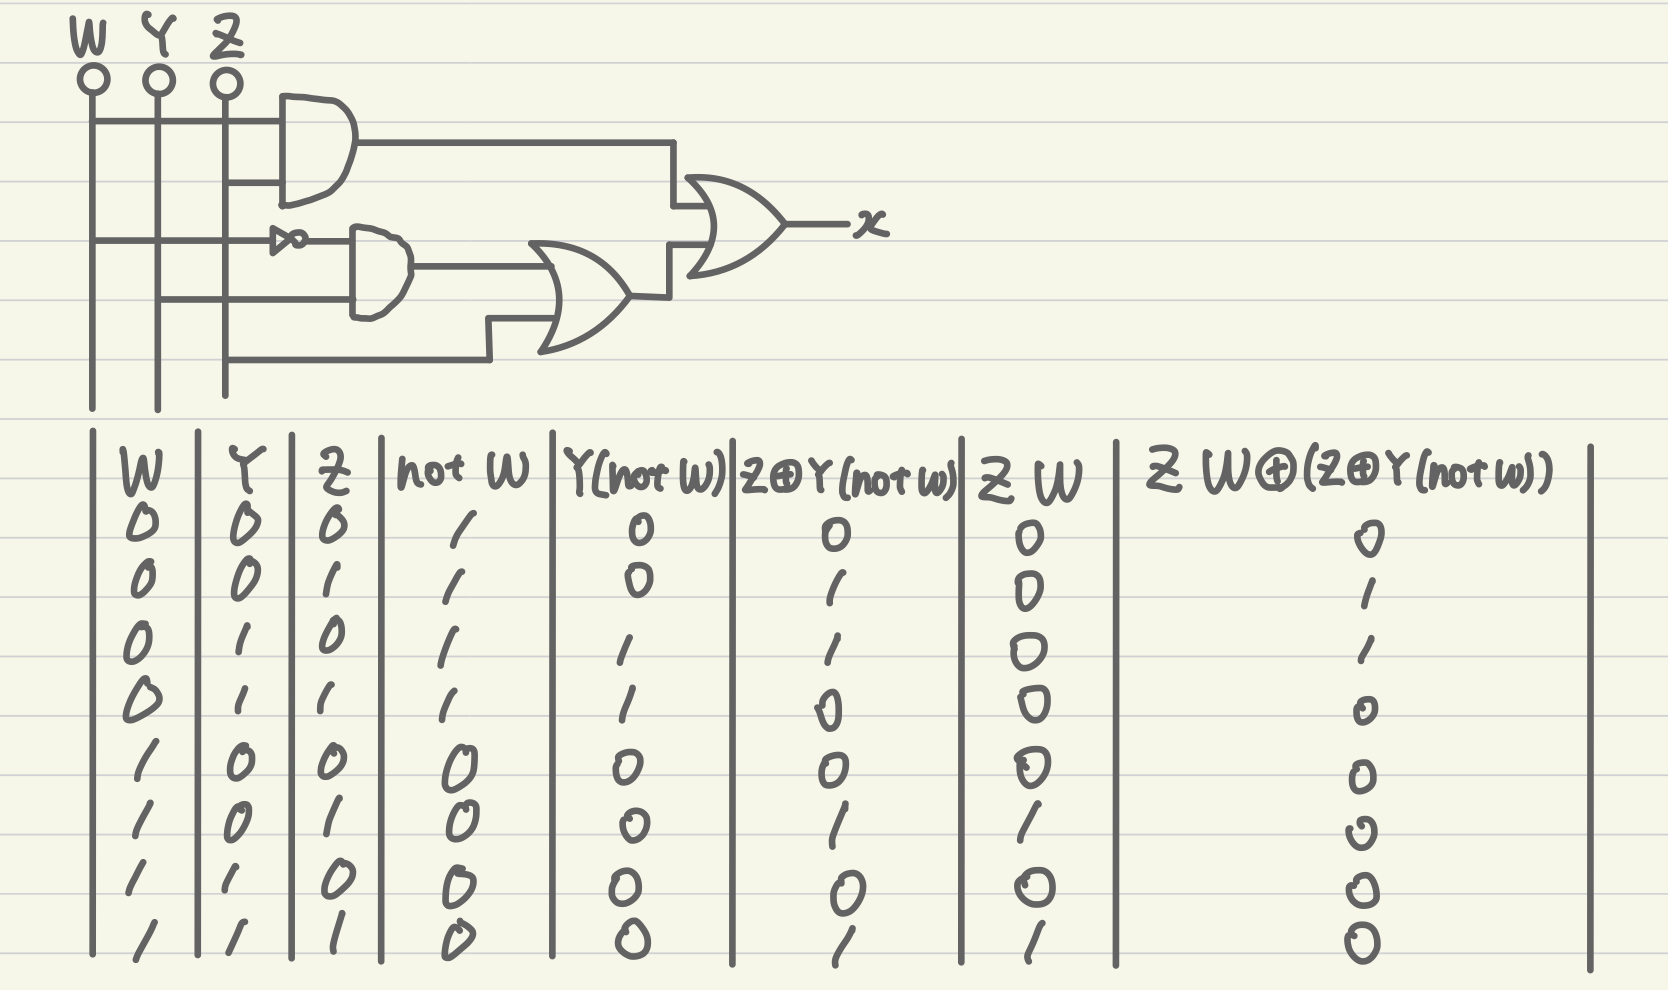 W Y Z
x
W Y Z not W Y(not W) Z⊕Y(not W) Z W Z W⊕(Z⊕Y(not W))
0 0 0 1 0 0 0 0
0 0 1 1 0 1 0 1
0 1 0 1 1 1 0 1
0 1 1 1 1 0 0 0
1 0 0 0 0 0 0 0
1 0 1 0 0 1 1 0
1 1 0 0 0 0 0 0
1 1 1 0 0 1 1 0